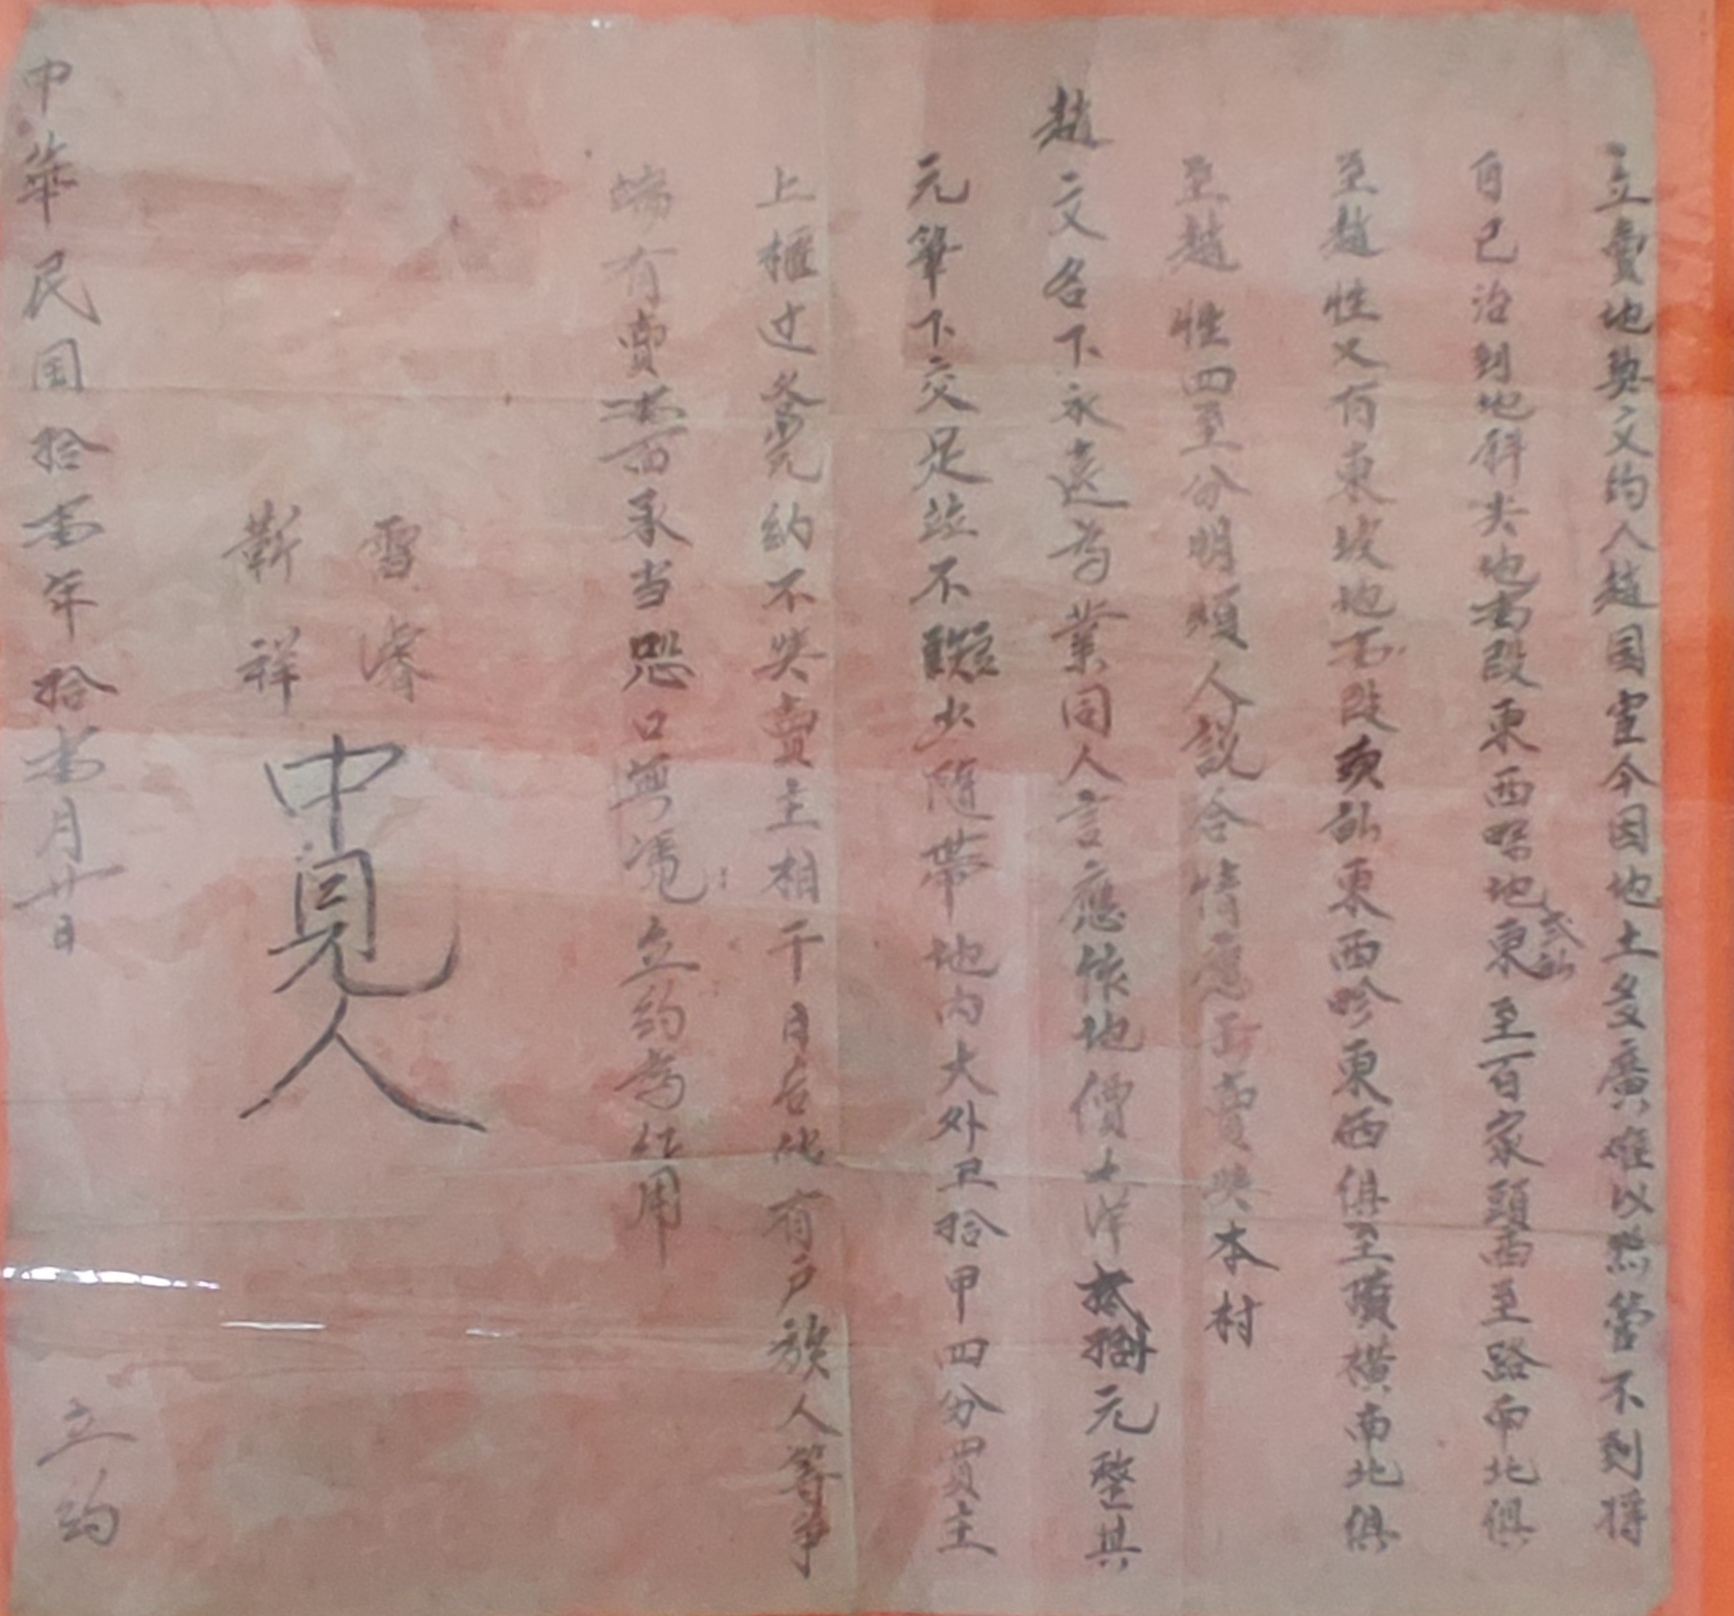 立賣地契文約人趙國宝今因地土多廣难以照管不到將
自己治到地斜尖地壱段東西畛地弍畝東至百家頭西至路南北俱
至趙性又有東坡地壱段頃畝東西畛東西俱至墳横南北俱
至趙性四至分明煩人説合情愿出賣與本村
趙文名下永遠為業同人言應作地價大洋貳拾元整其
元筆下交足並不短少随帶地内大外卫拾甲四分買主
上樻过冬完約不與賣主相干日后此有户族人等争
端有賣主一面承当恐口無凭立約為証用
雪濬
靳祥
中見人
中華民国拾壱年拾壱月廿日 立約